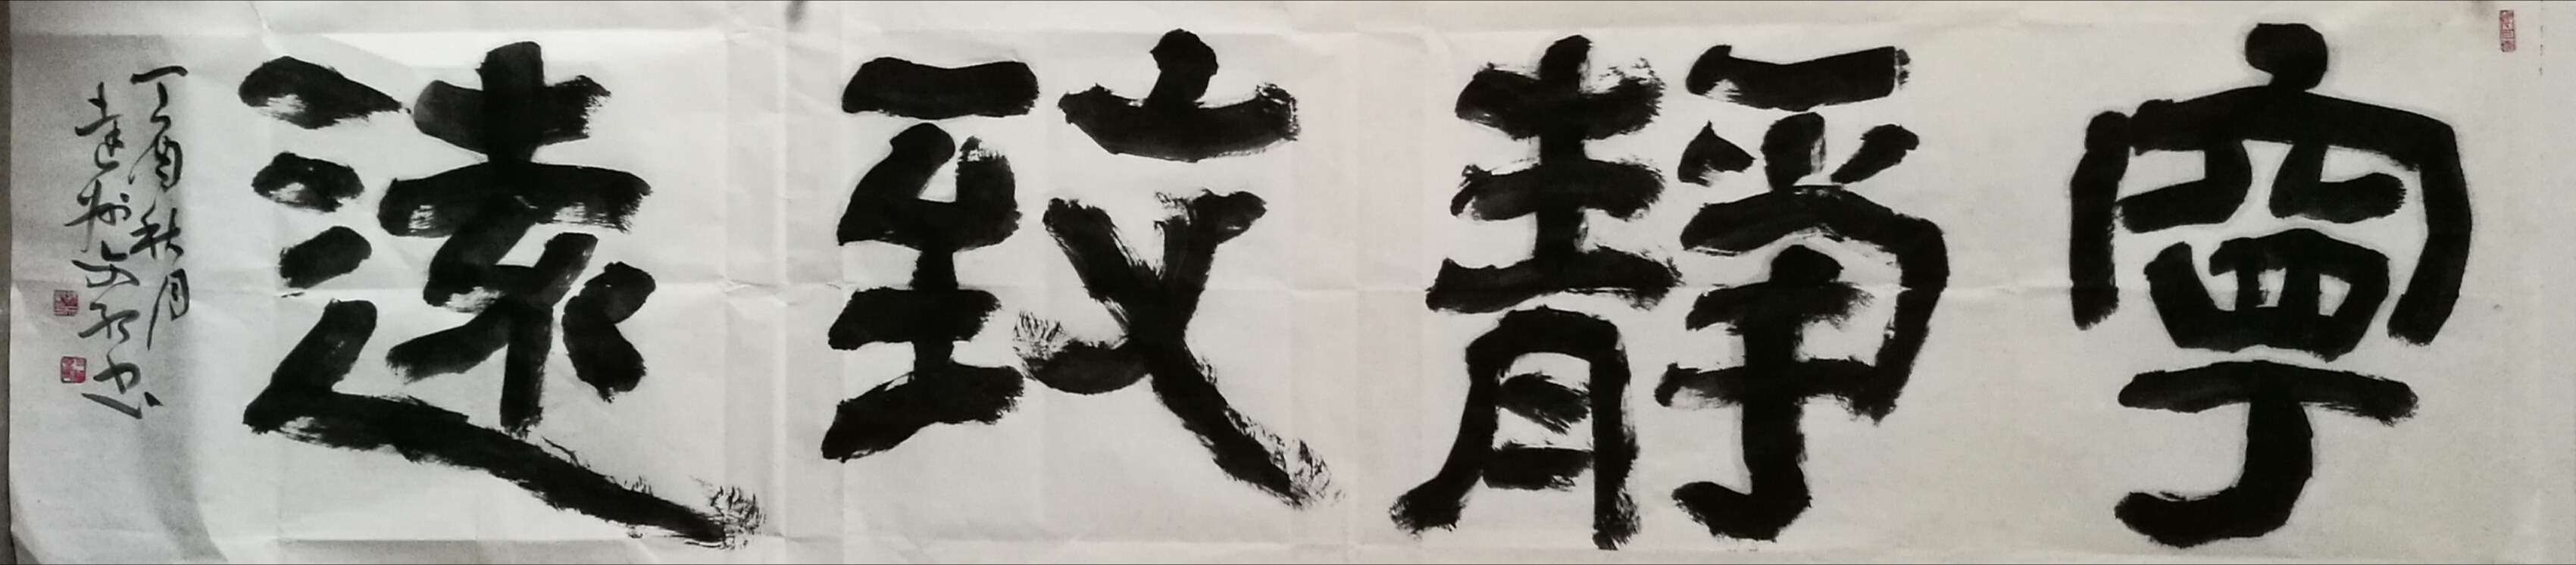 寧靜致遠
丁酉秋月
達州